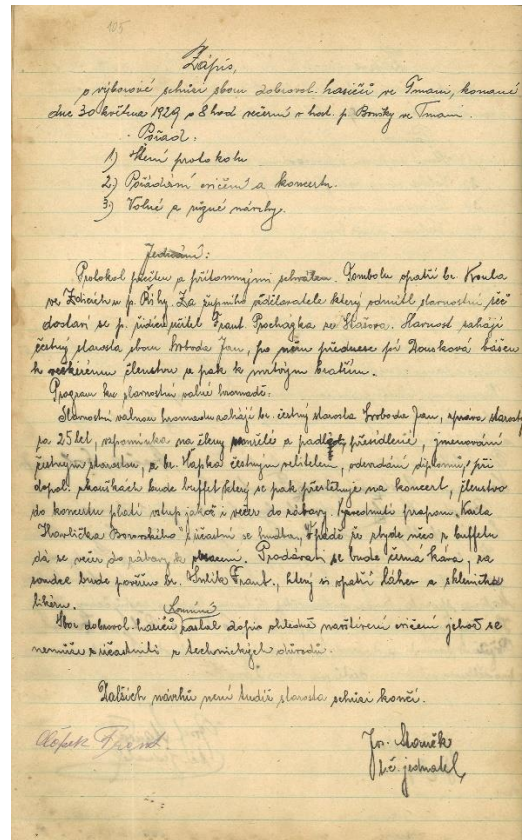 105
Zápis,
o výborové schůzi sboru dobrovol. hasičů ve Tmani, konané
dne 30 května 1929 o 8 hod večerní v host. p. Brosky ve Tmani.
Pořad:
1) Čtení protokolu
2.) Pořádání cvičení a koncertu.
3.) Volné a různé návrhy.
Jednání:
Protokol přečten a přítomnými schválen. Tombolu opatří br. Kroula
ve Zdicích u p. Řihy. Za župního vzdělavatele který odmítl slavnostní řeč
dostaví se p. řídící učitel Frant. Procházka ze Stašova. Slavnost zahájí
čestný starosta sboru Svoboda Jan, po něm přednese pí Dousková báseň
k veškerému členstvu a pak k mrtvým bratřím.
Program ku slavnostní valné hromadě:
Slavnostní valnou hromadu zahájí br. čestný starosta Svoboda Jan, zpráva starosty
za 25 let, vzpomínka na členy zemřelé a padlé, jmenování
čestným starostou, a br. Hapka čestným velitelem, odevzdání diplomů, při
dopol. zkouškách bude buffet který se pak přestěhuje na koncert, členstvo
do koncertu platí vstup jakož i večer do zábavy. Vyzvednutí prapor.
Havlíčka Borovského súčastní se hudba, V pádě že zbyde něco z buffetu
dá se večer do zábavy k Prodávati se bude černá káva, za
soudce bude pozván br. Frant., který si opatří láhev a skleničku
likéru.
Kromině
Sbor dobrovol. hasičů zaslal dopis ohledně cvičení jehož se
nemůže súčastniti z technických důvodů.
Dalších návrhů není tudíž starosta schůzi končí.
Frant
Jos. Staněk
t.č. jednatel